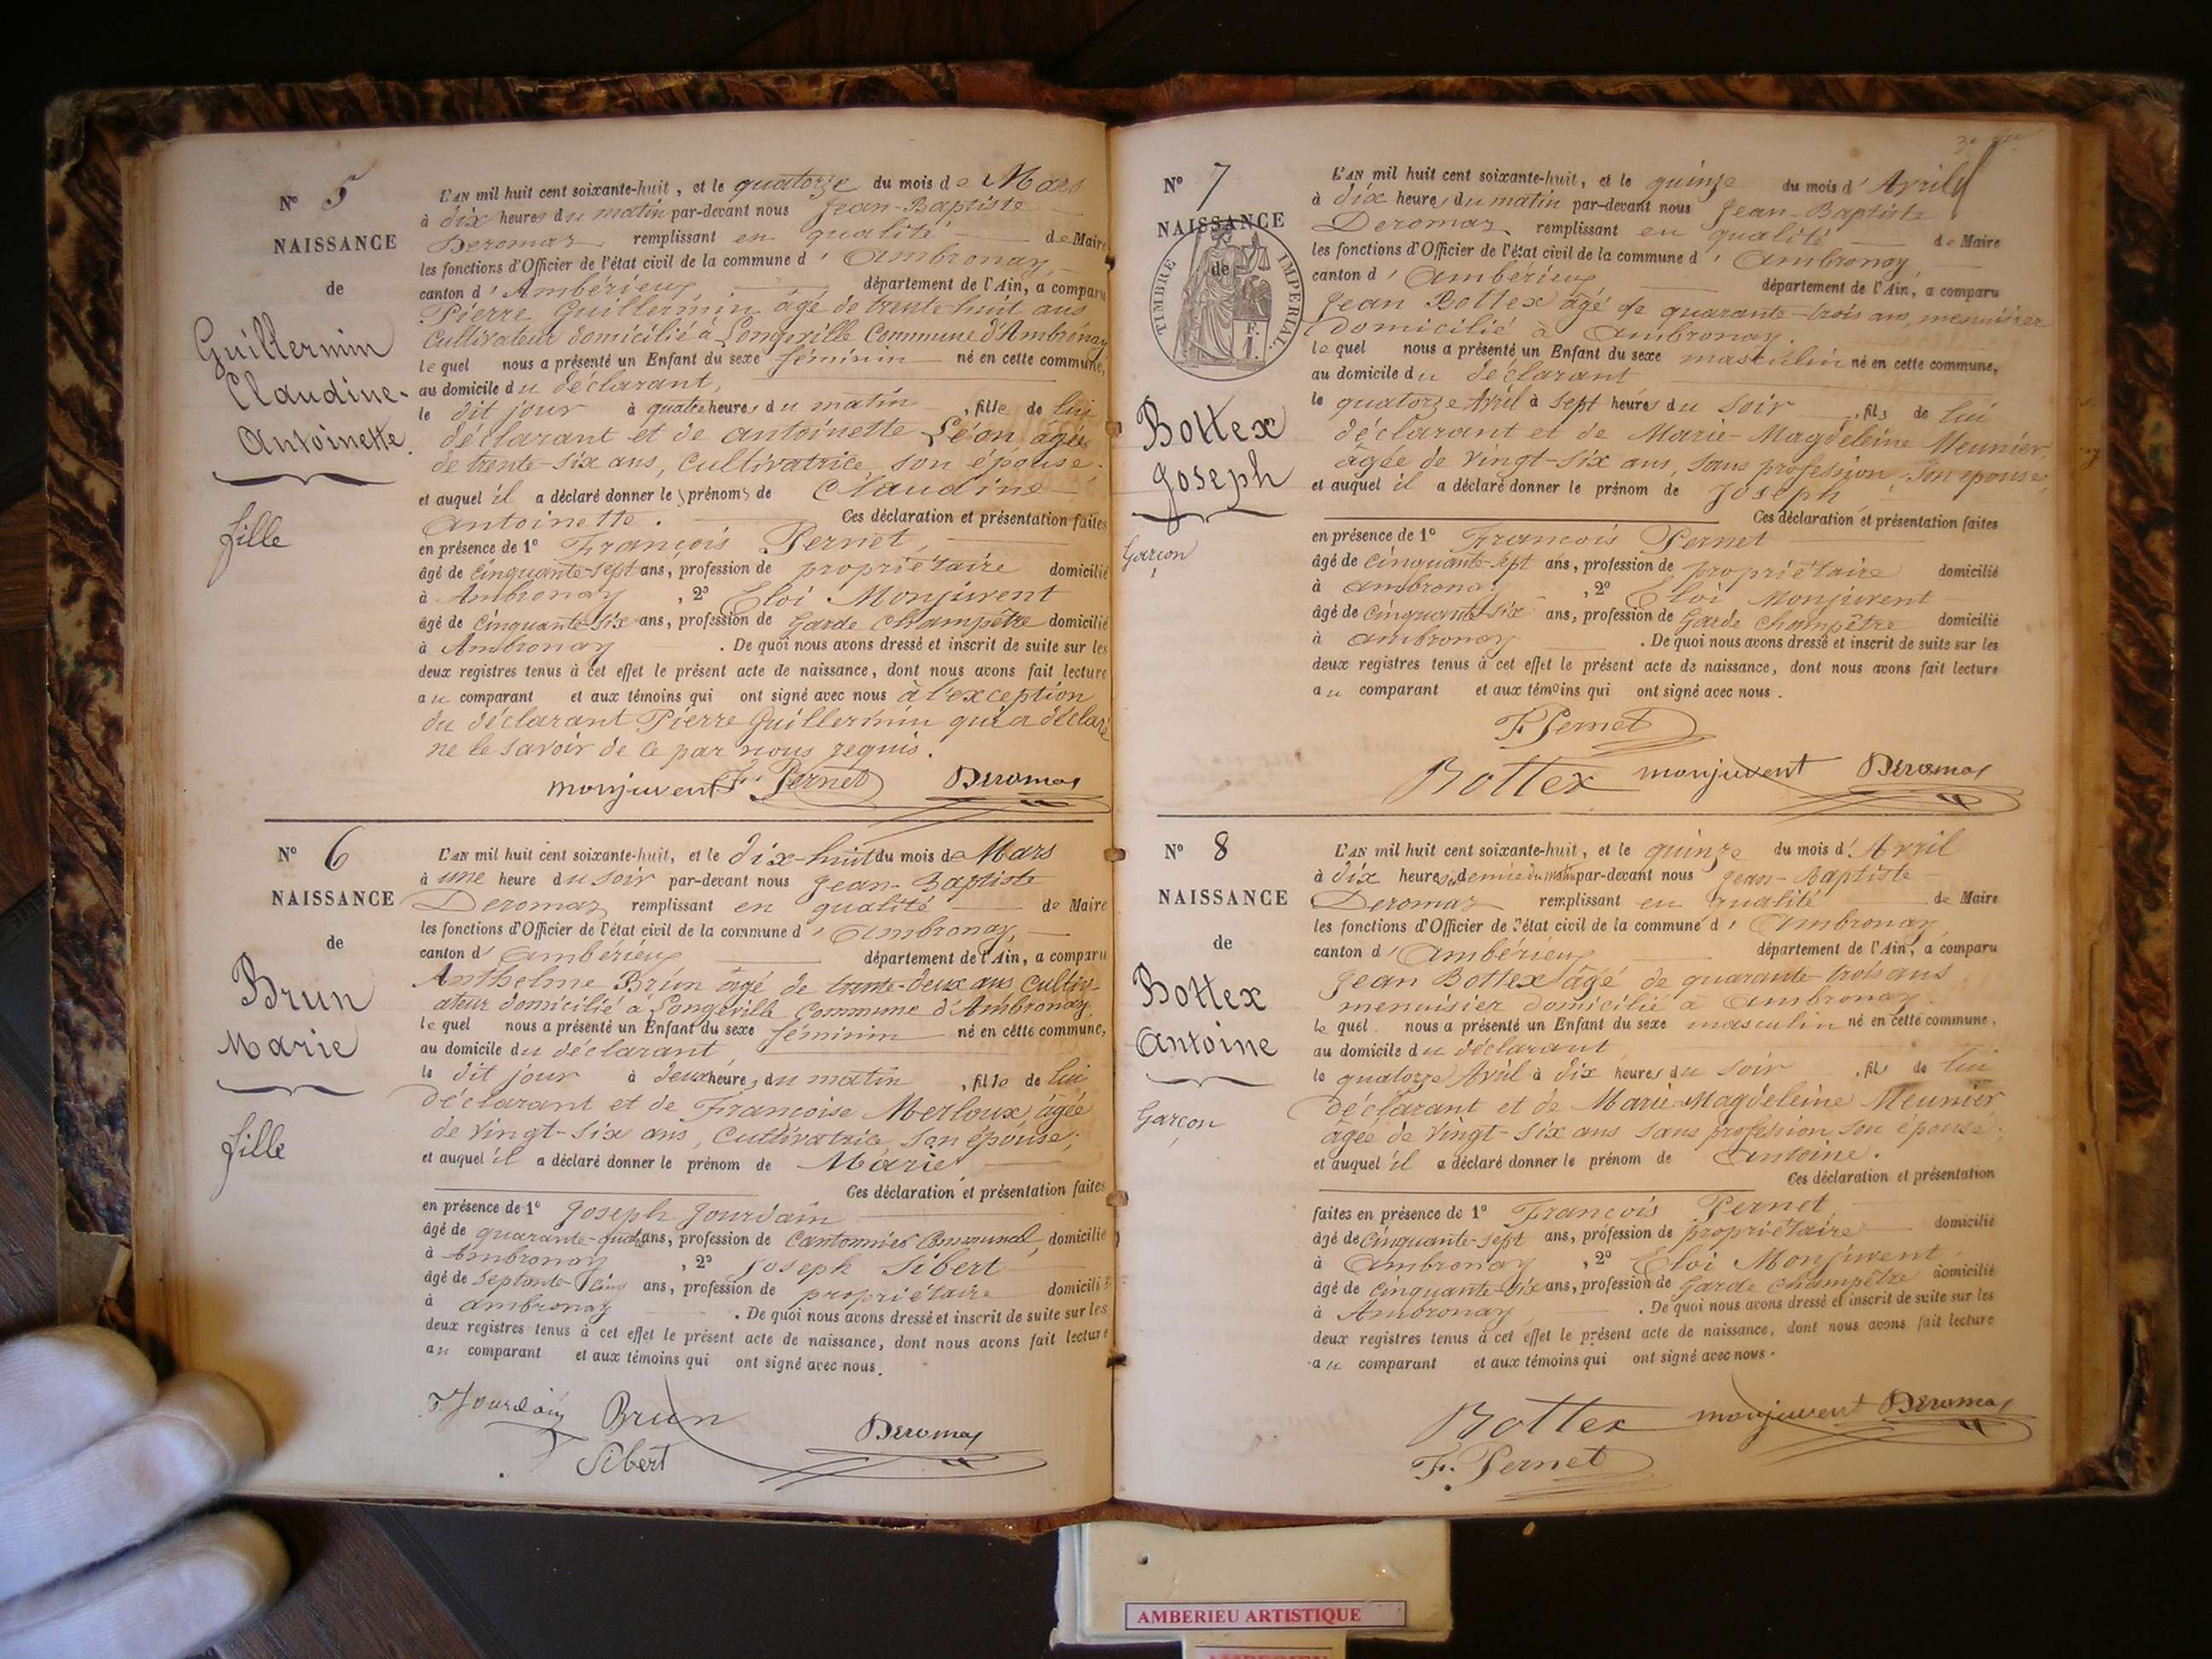 N° 5
NAISSANCE
de
Guillermin
Claudine-
Antoinette.
fille
L'AN mil huit cent soixante-huit, et le quatorze du mois de Mars
à dix heures du matin par-devant nous Jean-Baptiste
Deromas remplissant en qualité de Maire
les fonctions d'Officier de l'état civil de la commune d'Ambronay
canton d'Ambérieux département de l'Ain, a comparu
Pierre Guillermin âgé de trente-huit ans
Cultivateur domicilié à Longeville Commune d'Ambronay
lequel nous a présenté un Enfant du sexe féminin né en cette commune,
au domicile du déclarant,
le dit jour à quatre heures du matin, fille de lui
déclarant et de Antoinette Léon âgée
de trente-six ans, Cultivatrice, son épouse.
et auquel il a déclaré donner les prénoms de Claudine
Antoinette. Ces déclaration et présentation faites
en présence de 1° François Pernet,
âgé de cinquante-sept ans, profession de propriétaire domicilié
à Ambronay, 2° Eloi Monjuvent
âgé de cinquante-six ans, profession de Garde Champêtre domicilié
à Ambronay. De quoi nous avons dressé et inscrit de suite sur les
deux registres tenus à cet effet le présent acte de naissance, dont nous avons fait lecture
au comparant et aux témoins qui ont signé avec nous à l'exception
du déclarant Pierre Guillermin qui a déclaré
ne le savoir de ce par nous requis.
monjuvent F. Pernet Deromas
N° 6
NAISSANCE
de
Brun
Marie
fille
L'AN mil huit cent soixante-huit, et le dix-huit du mois de Mars
à une heure du soir par-devant nous Jean-Baptiste
Deromas remplissant en qualité de Maire
les fonctions d'Officier de l'état civil de la commune d'Ambronay,
canton d'Ambérieux département de l'Ain, a comparu
Anthelme Brun âgé de trente-deux ans, Cultiv-
ateur domicilié à Longeville Commune d'Ambronay.
lequel nous a présenté un Enfant du sexe féminin né en cette commune,
au domicile du déclarant,
le dit jour à deux heures du matin, fille de lui
déclarant et de Françoise Merloux âgée
de vingt-six ans, Cultivatrice son épouse;
et auquel il a déclaré donner le prénom de Marie
Ces déclaration et présentation faites
en présence de 1° Joseph Jourdain
âgé de quarante-quatre ans, profession de Cantonnier Communal, domicilié
à Ambronay, 2° Joseph Sibert
âgé de septante-cinq ans, profession de propriétaire domicilié
à Ambronay. De quoi nous avons dressé et inscrit de suite sur les
deux registres tenus à cet effet le présent acte de naissance, dont nous avons fait lecture
au comparant et aux témoins qui ont signé avec nous.
Jourdain Brun Deromas
Sibert
N° 7
NAISSANCE
de
TIMBRE IMPÉRIAL.
Bottex
Joseph
Garçon
L'AN mil huit cent soixante-huit, et le quinze du mois d'Avril
à dix heures du matin par-devant nous Jean-Baptiste
Deromas remplissant en qualité de Maire
les fonctions d'Officier de l'état civil de la commune d'Ambronay
canton d'Ambérieux département de l'Ain, a comparu
Jean Bottex âgé de quarante-trois ans, menuisier
domicilié à Ambronay.
lequel nous a présenté un Enfant du sexe masculin né en cette commune,
au domicile du déclarant
le quatorze Avril à sept heures du soir, fils de lui
déclarant et de Marie-Magdeleine Meunier
âgée de vingt-six ans, sans profession, son épouse,
et auquel il a déclaré donner le prénom de Joseph
Ces déclaration et présentation faites
en présence de 1° François Pernet
âgé de cinquante-sept ans, profession de propriétaire domicilié
à Ambronay, 2° Eloi Monjuvent
âgé de cinquante-six ans, profession de Garde Champêtre domicilié
à Ambronay. De quoi nous avons dressé et inscrit de suite sur les
deux registres tenus à cet effet le présent acte de naissance, dont nous avons fait lecture
au comparant et aux témoins qui ont signé avec nous.
F. Pernet
Bottex monjuvent Deromas
N° 8
NAISSANCE
de
Bottex
Antoine
Garçon
L'AN mil huit cent soixante-huit, et le quinze du mois d'Avril
à dix heures et demie du matin par-devant nous Jean-Baptiste
Deromas remplissant en qualité de Maire
les fonctions d'Officier de l'état civil de la commune d'Ambronay
canton d'Ambérieux département de l'Ain, a comparu
Jean Bottex âgé de quarante-trois ans
menuisier domicilié à Ambronay.
lequel nous a présenté un Enfant du sexe masculin né en cette commune,
au domicile du déclarant
le quatorze Avril à dix heures du soir, fils de lui
déclarant et de Marie-Magdeleine Meunier
âgée de vingt-six ans sans profession son épouse;
et auquel il a déclaré donner le prénom de Antoine.
Ces déclaration et présentation
faites en présence de 1° François Pernet
âgé de cinquante-sept ans, profession de propriétaire domicilié
à Ambronay, 2° Eloi Monjuvent
âgé de cinquante-six ans, profession de Garde Champêtre domicilié
à Ambronay. De quoi nous avons dressé et inscrit de suite sur les
deux registres tenus à cet effet le présent acte de naissance, dont nous avons fait lecture
au comparant et aux témoins qui ont signé avec nous.
Bottex monjuvent Deromas
F. Pernet
AMBERIEU ARTISTIQUE